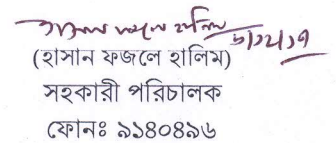 (হাসান ফজলে হালিম)
সহকারী পরিচালক
ফোনঃ ৯১৪০৪৯৬